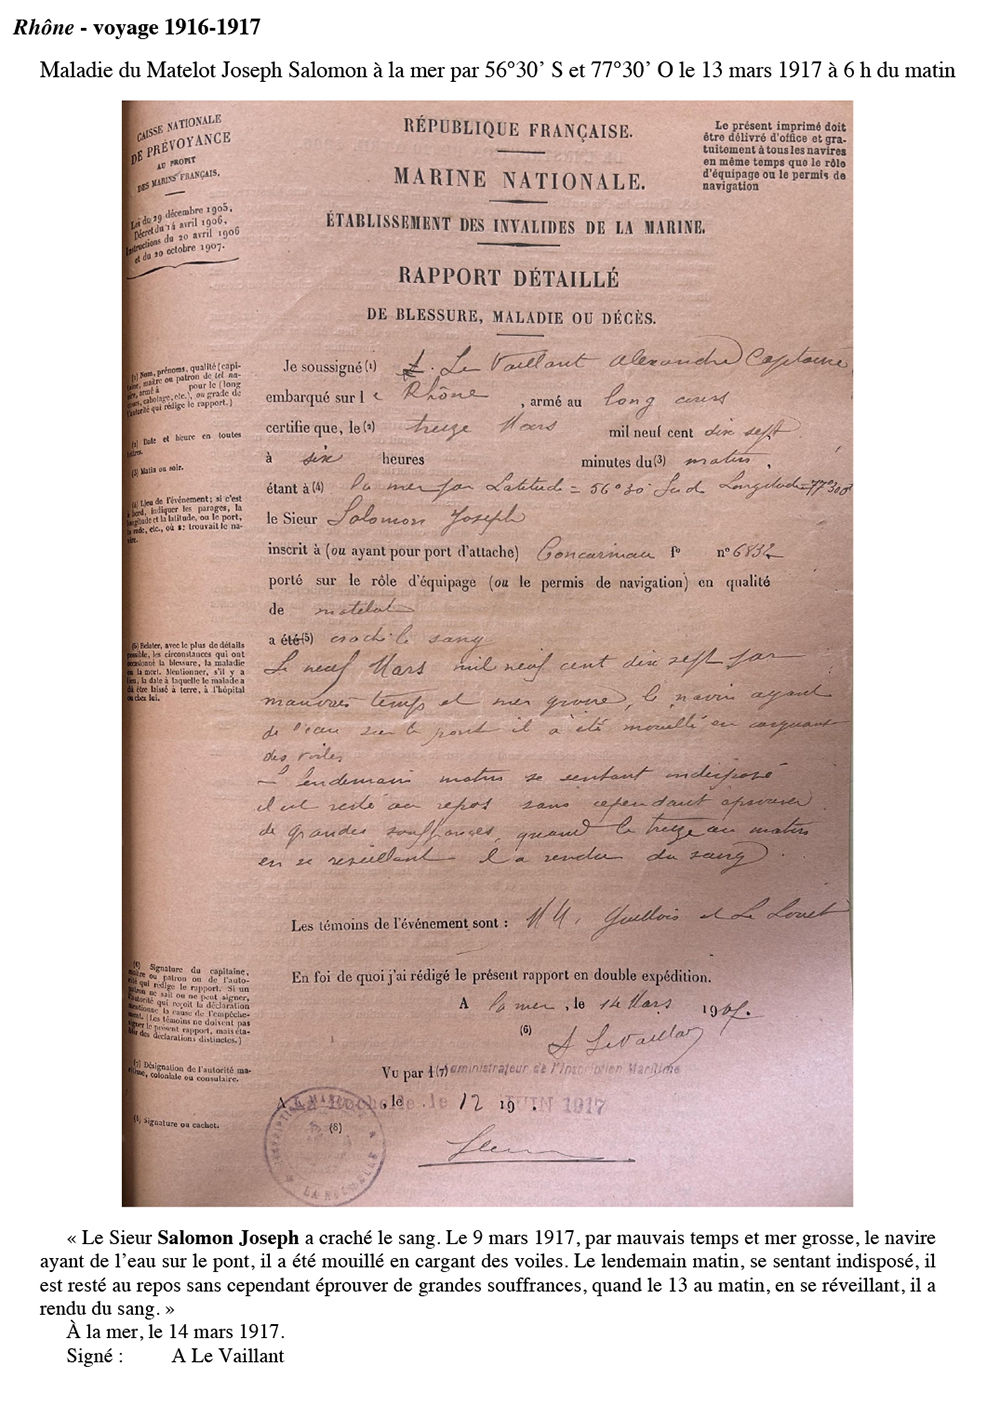 Rhône - voyage 1916-1917
Maladie du Matelot Joseph Salomon à la mer par 56°30’ S et 77°30’ O le 13 mars 1917 à 6 h du matin
CAISSE NATIONALE
DE PRÉVOYANCE
AU PROFIT
DES MARINS FRANÇAIS.
Loi du 29 décembre 1905,
Décret du 14 avril 1906,
Instructions du 20 avril 1906
et du 20 octobre 1907.
RÉPUBLIQUE FRANÇAISE.
MARINE NATIONALE.
ÉTABLISSEMENT DES INVALIDES DE LA MARINE.
RAPPORT DÉTAILLÉ
DE BLESSURE, MALADIE OU DÉCÈS.
Le présent imprimé doit
être délivré d'office et gra-
tuitement à tous les navires
en même temps que le rôle
d'équipage ou le permis de
navigation
(1) Nom, prénoms, qualité (capi-
taine, maître ou patron de tel na-
vire, armé à pour le (long
cours, cabotage, etc.), ou grade de
l'autorité qui rédige le rapport.)
(2) Date et heure en toutes
lettres.
(3) Matin ou soir.
(4) Lieu de l'événement; si c'est
à bord, indiquer les parages, la
longitude et la latitude, ou le port,
la rade, etc., où se trouvait le na-
vire.
Je soussigné (1) Le Vaillant Alexandre Capitaine
embarqué sur le Rhône, armé au long cours
certifie que, le (2) treize Mars mil neuf cent dix sept
à six heures minutes du (3) matin,
étant à (4) la mer par Latitude = 56°30 Sud Longitude = 77°30 O
le Sieur Salomon Joseph
inscrit à (ou ayant pour port d'attache) Concarneau f° n° 6832
porté sur le rôle d'équipage (ou le permis de navigation) en qualité
de matelot
a été (5) craché le sang
(5) Relater, avec le plus de détails
possible, les circonstances qui ont
occasionné la blessure, la maladie
ou la mort. Mentionner, s'il y a
lieu, la date à laquelle le malade a
dû être laissé à terre, à l'hôpital
ou chez lui.
Le neuf Mars mil neuf cent dix sept par
mauvais temps et mer grosse, le navire ayant
de l'eau sur le pont il a été mouillé en carguant
des voiles
— Le lendemain matin se sentant indisposé
il est resté au repos sans cependant éprouver
de grandes souffrances, quand le treize au matin
en se reveillant il a rendu du sang.
Les témoins de l'événement sont : MM. Guillois et Le Louët
En foi de quoi j'ai rédigé le présent rapport en double expédition.
(6) Signature du capitaine,
maître ou patron ou de l'auto-
rité qui rédige le rapport. (Si un
patron ne sait ou ne peut signer,
l'autorité qui reçoit la déclaration
mentionne la cause de l'empêche-
ment.) (Les témoins ne doivent pas
signer le présent rapport, mais éta-
blir des déclarations distinctes.)
A la mer, le 14 Mars 1917.
(6)
A Le Vaillant
(7) Désignation de l'autorité ma-
ritime, coloniale ou consulaire.
Vu par l (7) Administrateur de l'Inscription Maritime
A La Rochelle, le 12 JUIN 1917
(8)
(8) Signature ou cachet.
INSCRIPTION MARITIME
LA ROCHELLE
« Le Sieur Salomon Joseph a craché le sang. Le 9 mars 1917, par mauvais temps et mer grosse, le navire
ayant de l’eau sur le pont, il a été mouillé en cargant des voiles. Le lendemain matin, se sentant indisposé, il
est resté au repos sans cependant éprouver de grandes souffrances, quand le 13 au matin, en se réveillant, il a
rendu du sang. »
À la mer, le 14 mars 1917.
Signé : A Le Vaillant